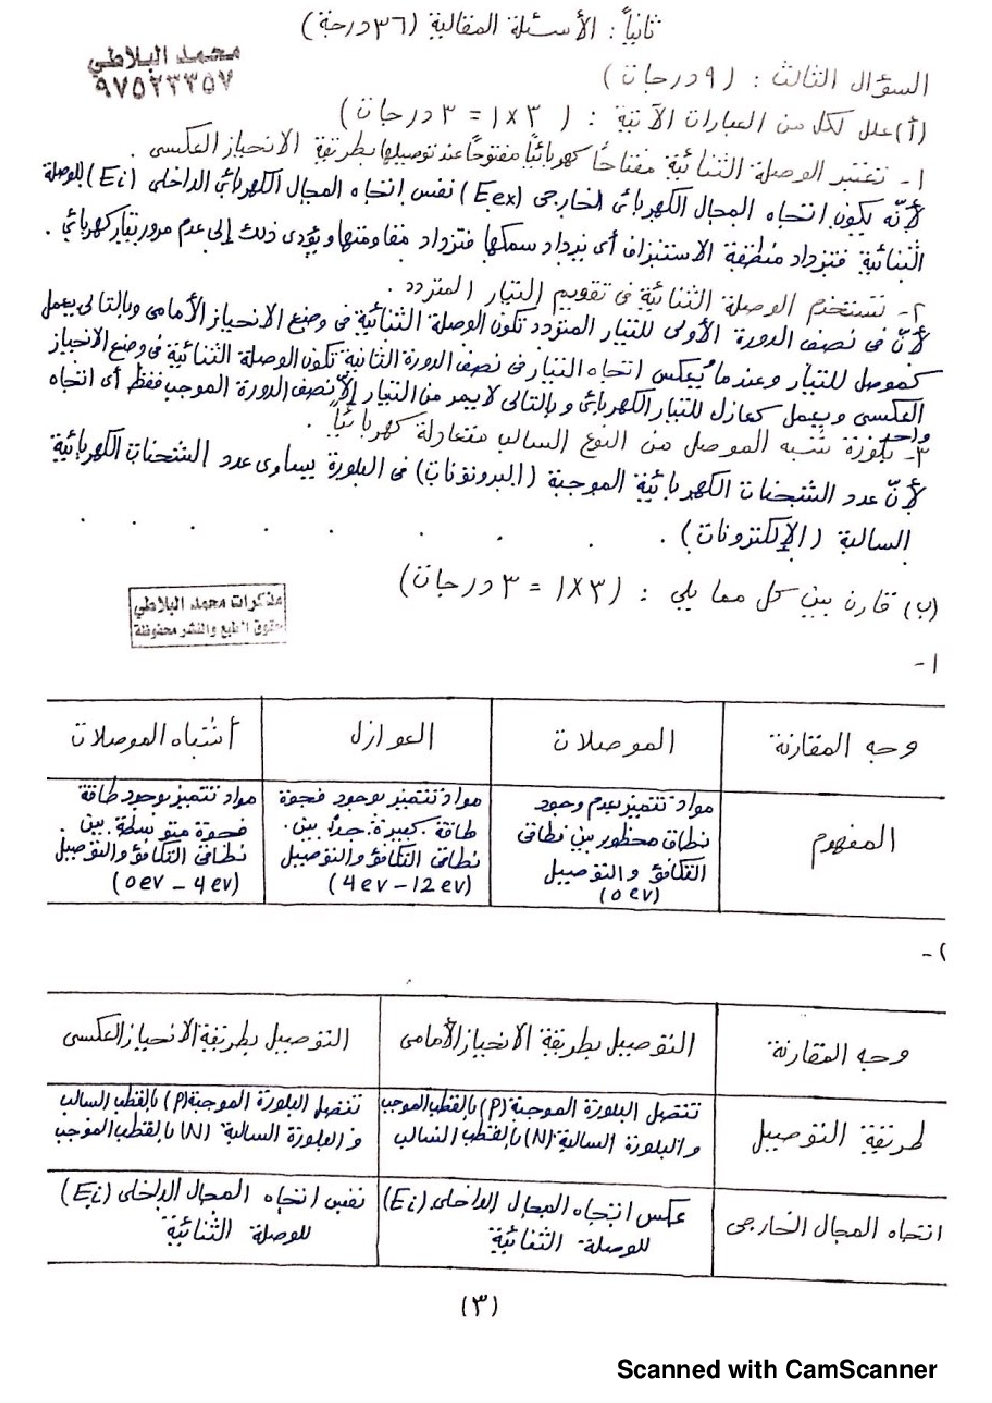 ثانياً : الأسئلة المقالية (٣٦ درجة)
محمد البلاطي
٩٧٥٢٣٣٥٧
السؤال الثالث : (٩ درجات)
(أ) علل لكل من العبارات الآتية : (٣ × ١ = ٣ درجات)
١- تعتبر الوصلة الثنائية مفتاحاً كهربائياً مفتوحاً عند توصيلها بطريقة الانحياز العكسي .
لأنه يكون اتجاه المجال الكهربائي الخارجي (Eex) نفس اتجاه المجال الكهربائي الداخلي (Ei) للوصلة
الثنائية فتزداد منطقة الاستنزاف أي يزداد سمكها فتزداد مقاومتها ويؤدى ذلك إلى عدم مرور تيار كهربائي .
٢- تستخدم الوصلة الثنائية في تقويم التيار المتردد .
لأن في نصف الدورة الأولى للتيار المتردد تكون الوصلة الثنائية في وضع الانحياز الأمامي وبالتالي يعمل
كموصل للتيار وعندما يُعكس اتجاه التيار في نصف الدورة الثانية تكون الوصلة الثنائية في وضع الانحياز
العكسي ويعمل كعازل للتيار الكهربائي وبالتالي لا يمر من التيار إلا نصف الدورة الموجب فقط أي اتجاه
واحد
٣- بلورة شبه الموصل من النوع السالب متعادلة كهربائياً .
لأن عدد الشحنات الكهربائية الموجبة (البروتونات) في البلورة يساوى عدد الشحنات الكهربائية
السالبة (الإلكترونات) .
(ب) قارن بين كل مما يلي : (٣ × ١ = ٣ درجات)
مذكرات محمد البلاطي
حقوق الطبع والنشر محفوظة
١-
وجه المقارنة الموصلات العوازل أشباه الموصلات
المفهوم
مواد تتميز بعدم وجود
نطاق محظور بين نطاقى
التكافؤ والتوصيل
(0 ev)
مواد تتميز بوجود فجوة
طاقة كبيرة جداً بين
نطاقى التكافؤ والتوصيل
(4ev - 12 ev)
مواد تتميز بوجود طاقة
فجوة متوسطة بين
نطاقى التكافؤ والتوصيل
(0ev - 4ev)
٢-
وجه المقارنة التوصيل بطريقة الانحياز الأمامى التوصيل بطريقة الانحياز العكسى
طريقة التوصيل
تتصل البلورة الموجبة (P) بالقطب الموجب
والبلورة السالبة (N) بالقطب السالب
تتصل البلورة الموجبة (P) بالقطب السالب
والبلورة السالبة (N) بالقطب الموجب
اتجاه المجال الخارجى
عكس اتجاه المجال الداخلى (Ei)
للوصلة الثنائية
نفس اتجاه المجال الداخلى (Ei)
للوصلة الثنائية
(٣)
Scanned with CamScanner